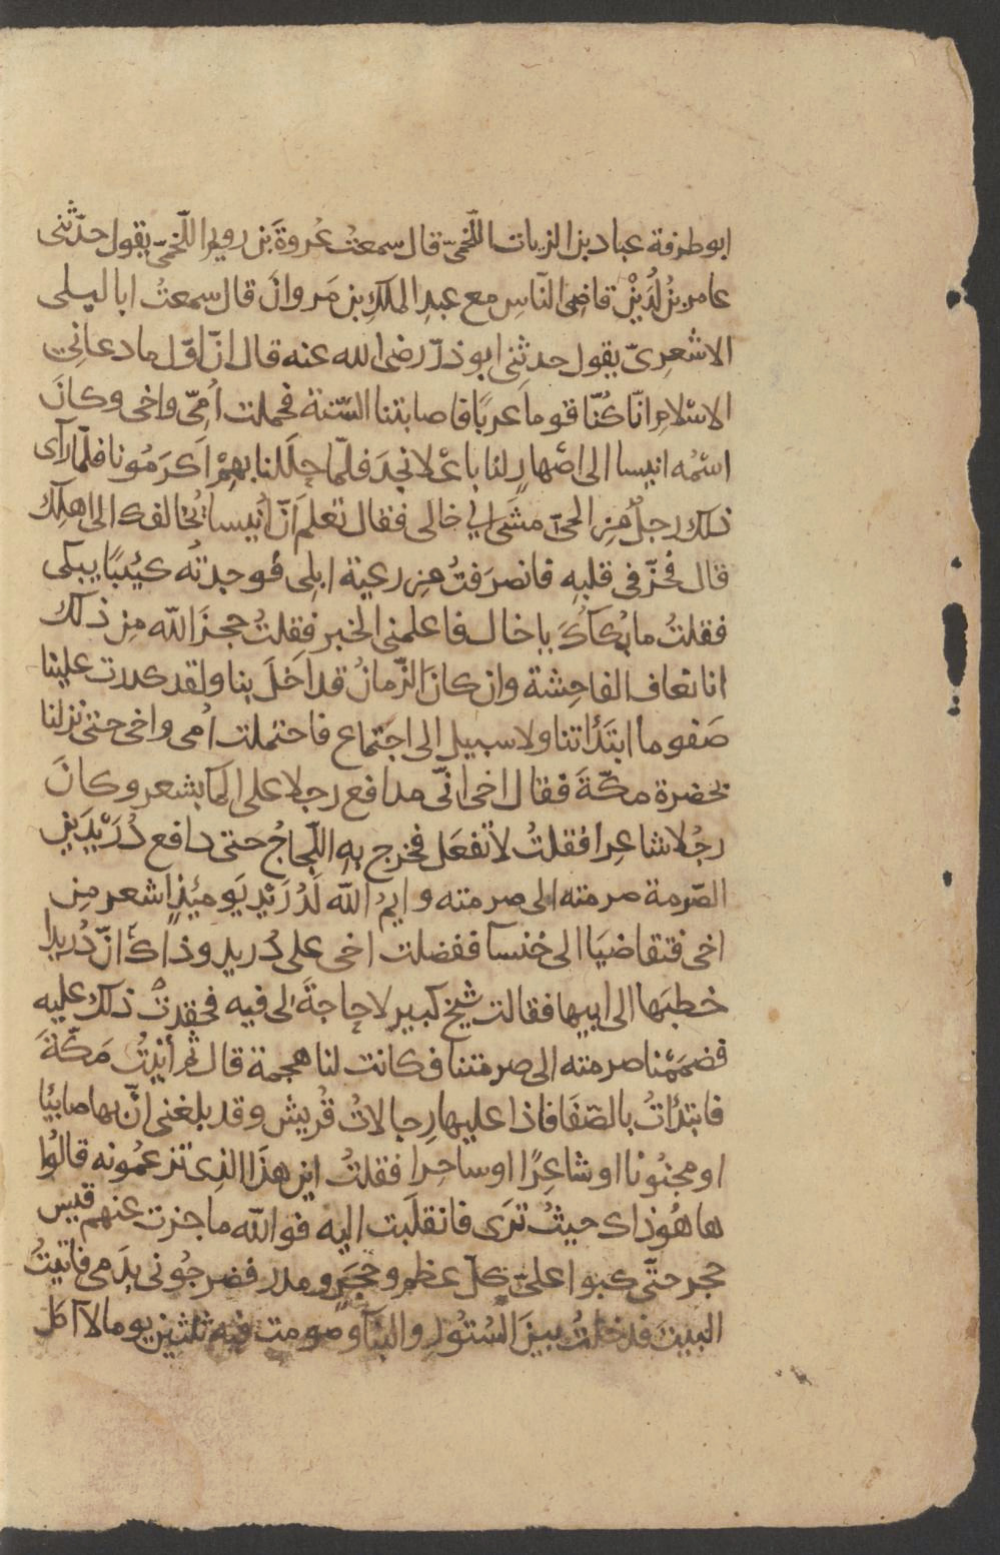 ابو طرفة عباد بن الزيات اللّخمىّ قال سمعتُ عُروةَ بن رويم اللّخمىّ يقول حدّثنى
عامر بنُ لُدَيْنٍ قاضِى الناسِ مع عبدِ الملكِ بن مَروانَ قال سمعتُ ابا ليلى
الاشعرِىّ يقول حدثنى ابو ذرّ رضى الله عنه قال انّ اوّل ما دعانِى
الاسْلامِ انّا كُنّا قوما عربًا فاصابتنا السّنة فحملت اُمِّى واخى وكانَ
اسْمُه انيسا الى اصْهارٍ لنا باعْلا نجدَ فلمّا حلَلنا بهِمْ اَكرَمُونا فلمّا رآى
ذلك رجلٌ مِن الحىّ مشَى الى خالى فقال تعلم اَنّ اُنيسا يُخالفك الى اهلك
قال فحزّ فى قلبهِ فانصرَفتُ مِن رعية ابلِى فوجدتُه كئيبًا يبكى
فقلتُ ما بُكآؤكَ يا خال فاعلمنى الخبر فقلتُ حجزَ الله مِن ذلك
انا نعاف الفاحِشة وان كانَ الزّمانُ قد اخلَ بنا ولقد كدرت علينا
صَفو ما ابتَدأتنا ولا سبيل الى اجتماع فاحتملت اُمى واخى حتى نزلنا
بحضرة مكّةَ فقال اخى انّى مدافع رجلا على المآ بشعر وكانَ
رجُلا شاعِرا فقلتُ لا تفعَل فخرج بهِ اللّجاجُ حتى دافع دُرَيْدَ بن
الصّرمة صرمته الى صرمته وايمُ الله لَدُرَيْد يَوميئذٍ اشعر مِن
اخى فتقاضيَا الى خنسآ ففضلت اخى على دُريد وذاكَ انّ دُريدا
خطبَها الى ابيها فقالت شيخ كبير لا حاجةَ لى فيه فحقدتْ ذلك عليه
فضمَمْنا صرمته الى صرمتنا فكانت لنا هجمة قال ثم أتيتُ مَكّةَ
فابتدأتُ بالصّفَا فاذا عليها رجالاتُ قُريش وقد بلغنى انّ بها صابئا
او مجنُونا او شاعِرًا او ساحِرا فقلتُ اين هذَا الذِى تزعمُونه قالُوا
ها هُو ذاك حيثُ ترَى فانقلَبت اليه فو الله ما جزت عنهم قيس
حجر حتَّى كبوا علىّ كلّ عظم وحجَرٍ ومدر فضرجُونى بدَمى فاتيتُ
البيتَ فدخلتُ بينَ السُتُورِ والبنآ وصومت فيه ثلثين يوما لا آكل